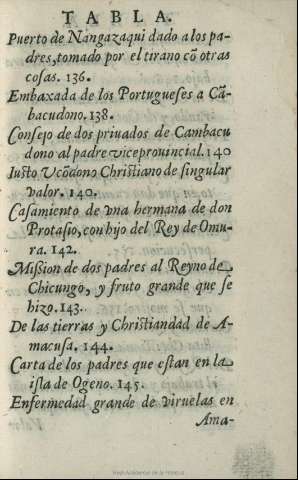 TABLA.
Puerto de Nangazaqui dado a los pa-
dres, tomado por el tirano cõ otras
cosas. 136.
Embaxada de los Portugueses a Cã-
bacudono. 138.
Consejo de dos priuados de Cambacu
dono al padre viceprouincial. 140
Iusto Vcõdono Christiano de singular
valor. 140.
Casamiento de vna hermana de don
Protasio, con hijo del Rey de Omu-
ra. 142.
Mission de dos padres al Reyno de
Chicungo, y fruto grande que se
hizo. 143.
De las tierras y Christiandad de A-
macusa. 144.
Carta de los padres que estan en la
isla de Ogeno. 145.
Enfermedad grande de viruelas en
Ama-
Real Academia de la Historia